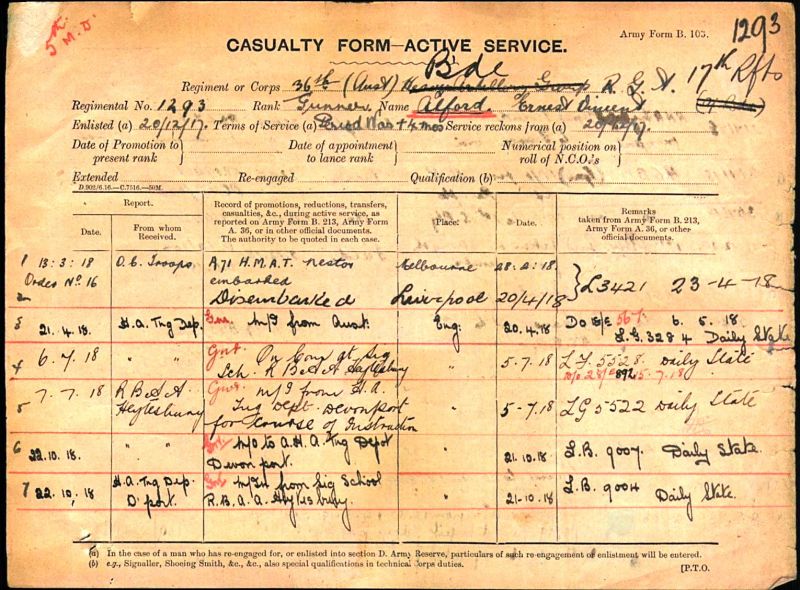 5th M.D.
Army Form B. 103.
1293
CASUALTY FORM—ACTIVE SERVICE.
Bde
17th Rfts
Regiment or Corps 36th (Aust) Heavy Artillery Group R. G. A.
Regimental No. 1293 Rank Gunner Name Alford. Ernest Vincent
Enlisted (a) 20/12/17. Terms of Service (a) Period War + 4 mos Service reckons from (a) 20/12/17.
Date of Promotion to present rank } Date of appointment to lance rank } Numerical position on roll of N.C.O.'s }
Extended Re-engaged Qualification (b)
D.902/6.16.—C.7516.—50M.
Report. Record of promotions, reductions, transfers, casualties, &c., during active service, as reported on Army Form B. 213, Army Form A. 36, or in other official documents. The authority to be quoted in each case. Place. Date. Remarks taken from Army Form B. 213, Army Form A. 36, or other official documents.
Date. From whom Received.
1 13.3.18 O.C. Troops A71 H.M.A.T. Nestor Melbourne 28.2.18.
Order No. 16 embarked } L3421 23-4-18
2 Disembarked Liverpool 20/4/18
3 21.4.18. H.A. Tng Dep. m/i from Aust. Eng: 20.4.18 Do 567. 6.5.18
L.G. 3284 Daily State
4 6.7.18 " " On Com at Sig Sch. R B & A Heytesbury " 5-7.18 L.F. 5528 Daily State
892 15.7.18
5 7-7.18 R B & A Heytesbury m/i from H.A. Tng Dept. Devonport for Course of Instruction " 5-7.18 LG 5522 Daily State
6 22.10.18. " " m/o to A.H.A. Tng Depot Devonport. " 21.10.18. L.B. 9007. Daily State.
7 22.10.18 H.A. Tng Dep. D'port. m/in from Sig School R.B.A.A. Heytesbury. " 21-10.18 L.B. 9004 Daily State.
(a) In the case of a man who has re-engaged for, or enlisted into section D. Army Reserve, particulars of such re-engagement or enlistment will be entered.
(b) e.g., Signaller, Shoeing Smith, &c., &c., also special qualifications in technical Corps duties.
[P.T.O.